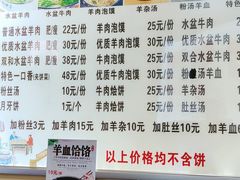 水盆羊肉 羊肉泡馍 羊杂汤 水盆牛肉
普通水盆羊肉 肥/瘦 22元/份 羊肉泡馍 25元/份 水盆牛肉
优质水盆羊肉 肥/瘦 30元/份 优质羊肉泡馍 35元/份 优质水盆牛肉
双合水盆羊肉 肥/瘦 38元/份 牛肉泡馍 25元/份 双合水盆牛肉
特色一口香 48元/份 优质牛肉泡馍 35元/份 粉汤羊血
粉丝汤 10元/份 羊杂汤 25元/份 羊血汤
月牙饼 1元/个 羊肉烩饼 25元/份 肚丝汤
加粉3元 加羊肉15元 加羊杂10元 加肚丝10元 加牛
羊血饸饹
以上价格均不含饼